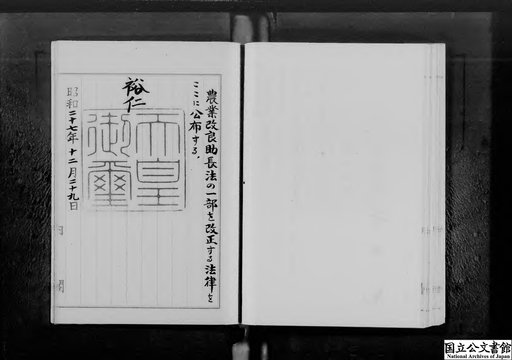 農業改良助長法の一部を改正する法律を
ここに公布する。
裕仁
天皇
御璽
昭和二十七年十二月二十九日
国立公文書館
National Archives of Japan